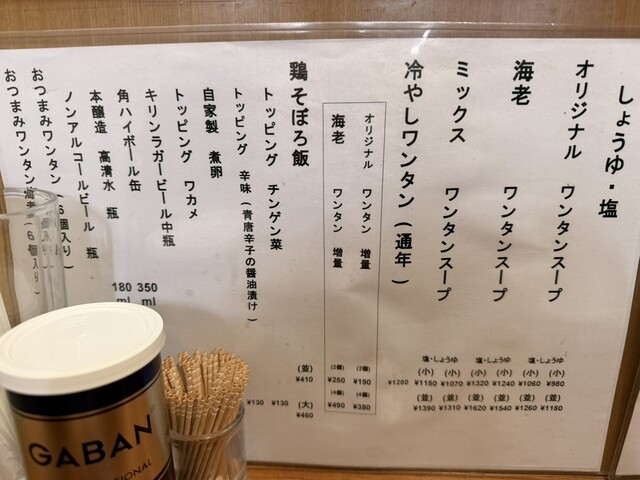 しょうゆ・塩
オリジナル ワンタンスープ
塩・しょうゆ
(小) (小)
¥1060 ¥980
(並) (並)
¥1260 ¥1180
海老 ワンタンスープ
塩・しょうゆ
(小) (小)
¥1320 ¥1240
(並) (並)
¥1620 ¥1540
ミックス ワンタンスープ
塩・しょうゆ
(小) (小)
¥1150 ¥1070
(並) (並)
¥1390 ¥1310
冷やしワンタン (通年)
¥1280
オリジナル ワンタン 増量
(2個)
¥190
(4個)
¥380
海老 ワンタン 増量
(2個)
¥250
(4個)
¥490
鶏そぼろ飯
(並)
¥410
(大)
¥460
トッピング チンゲン菜
¥130
トッピング 辛味(青唐辛子の醤油漬け)
¥130
自家製 煮卵
トッピング ワカメ
キリンラガービール中瓶
角ハイボール缶
350ml
本醸造 高清水 瓶
180ml
ノンアルコールビール 瓶
おつまみワンタン(6個入り)
おつまみワンタン海老(6個入り)
GABAN